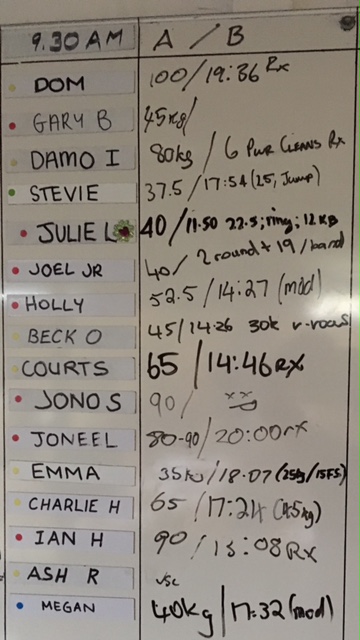 9.30 AM A / B
DOM 100/19:36 Rx
GARY B 45kg/
DAMO I 80kg / 6 PWR CLEANS Rx
STEVIE 37.5/17:54 (25, Jump)
JULIE L 40/11.50 22.5; ring; 12KB
JOEL JR 40/ 2 round + 19 /band
HOLLY 52.5/14:27 (mod)
BECK O 45/14:26 30k r-rows
COURTS 65/14:46 RX
JONO S 90/
JONEEL 80-90/20:00 rx
EMMA 35kg/18.07 (25kg/15FS)
CHARLIE H 65/17:24 (45kg)
IAN H 90/15:08 RX
ASH R
MEGAN 40kg/17:32 (mod)